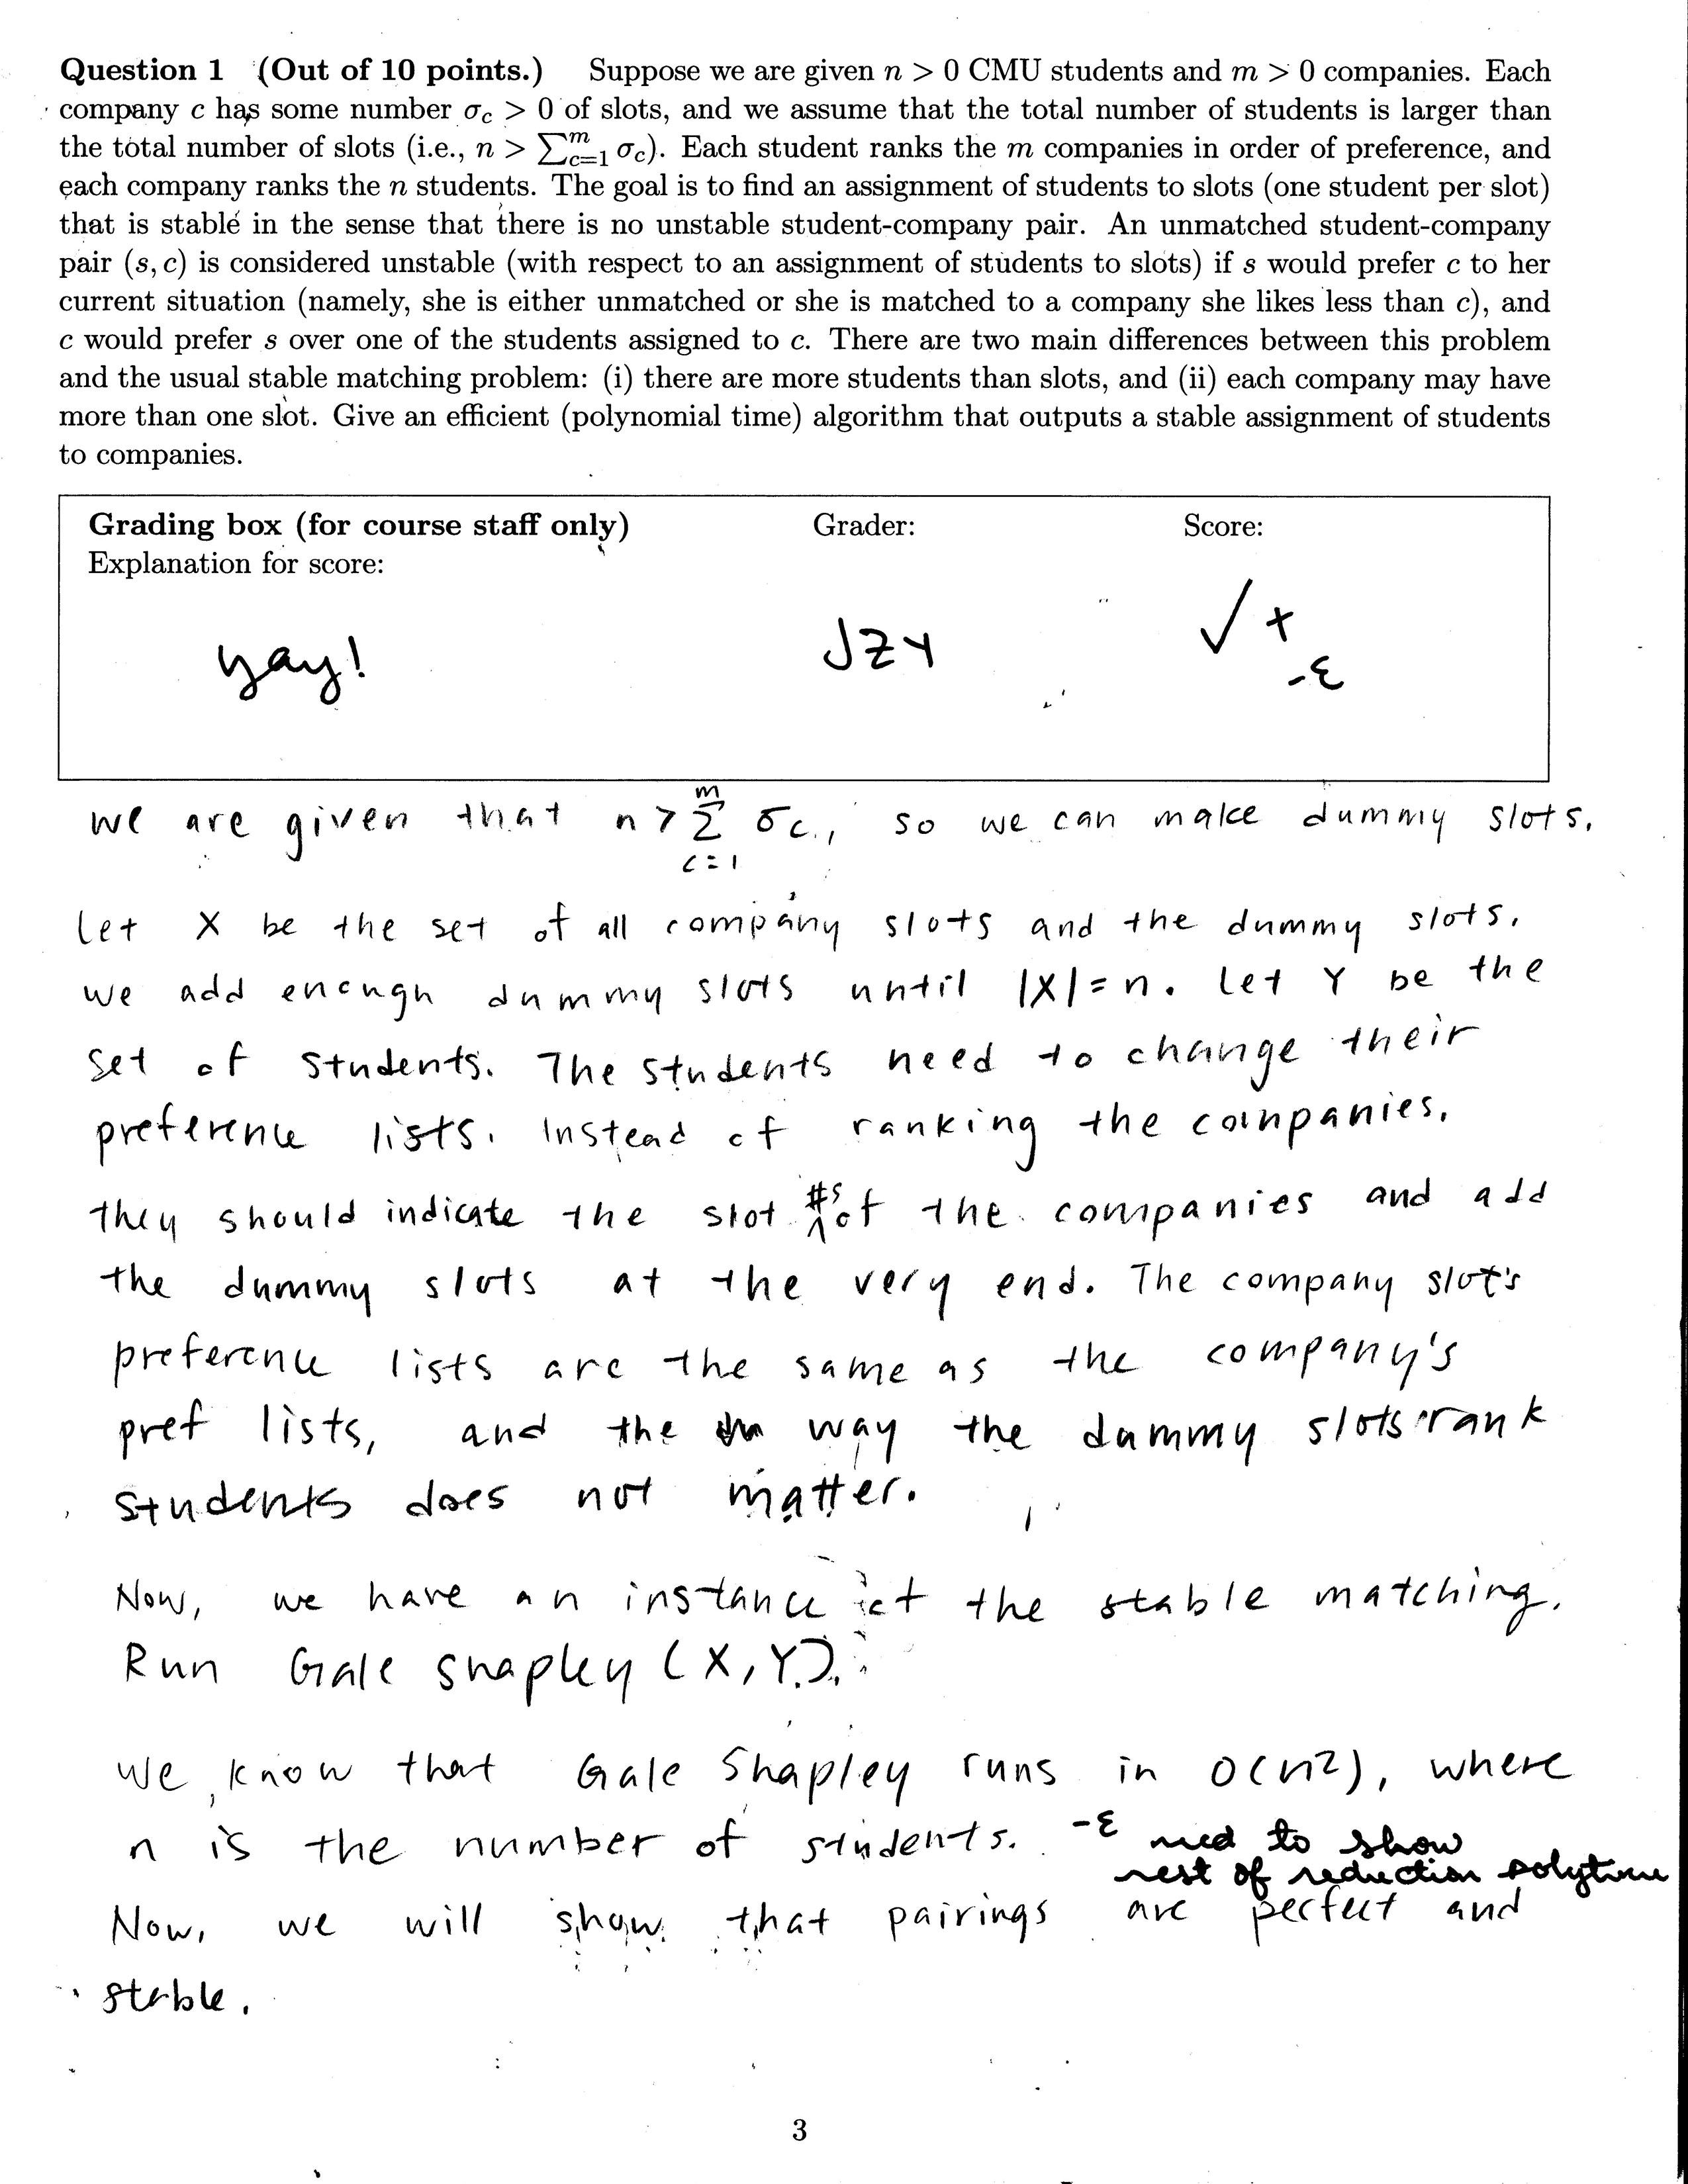 Question 1 (Out of 10 points.) Suppose we are given n > 0 CMU students and m > 0 companies. Each
company c has some number σc > 0 of slots, and we assume that the total number of students is larger than
the total number of slots (i.e., n > ∑_{c=1}^{m} σc). Each student ranks the m companies in order of preference, and
each company ranks the n students. The goal is to find an assignment of students to slots (one student per slot)
that is stable in the sense that there is no unstable student-company pair. An unmatched student-company
pair (s, c) is considered unstable (with respect to an assignment of students to slots) if s would prefer c to her
current situation (namely, she is either unmatched or she is matched to a company she likes less than c), and
c would prefer s over one of the students assigned to c. There are two main differences between this problem
and the usual stable matching problem: (i) there are more students than slots, and (ii) each company may have
more than one slot. Give an efficient (polynomial time) algorithm that outputs a stable assignment of students
to companies.
Grading box (for course staff only) Grader: Score:
Explanation for score:
yay! JZY ✓+
-ε
we are given that n > ∑_{c=1}^{m} σc, so we can make dummy slots.
Let X be the set of all company slots and the dummy slots.
we add enough dummy slots until |X| = n. Let Y be the
set of students. The students need to change their
preference lists. Instead of ranking the companies,
they should indicate the slot #s of the companies and add
the dummy slots at the very end. The company slot's
preference lists are the same as the company's
pref lists, and the way the dummy slots rank
students does not matter.
Now, we have an instance of the stable matching.
Run Gale Shapley (X, Y).
We know that Gale Shapley runs in O(n²), where
n is the number of students. -ε need to show
rest of reduction polytime
Now, we will show that pairings are perfect and
stable.
3